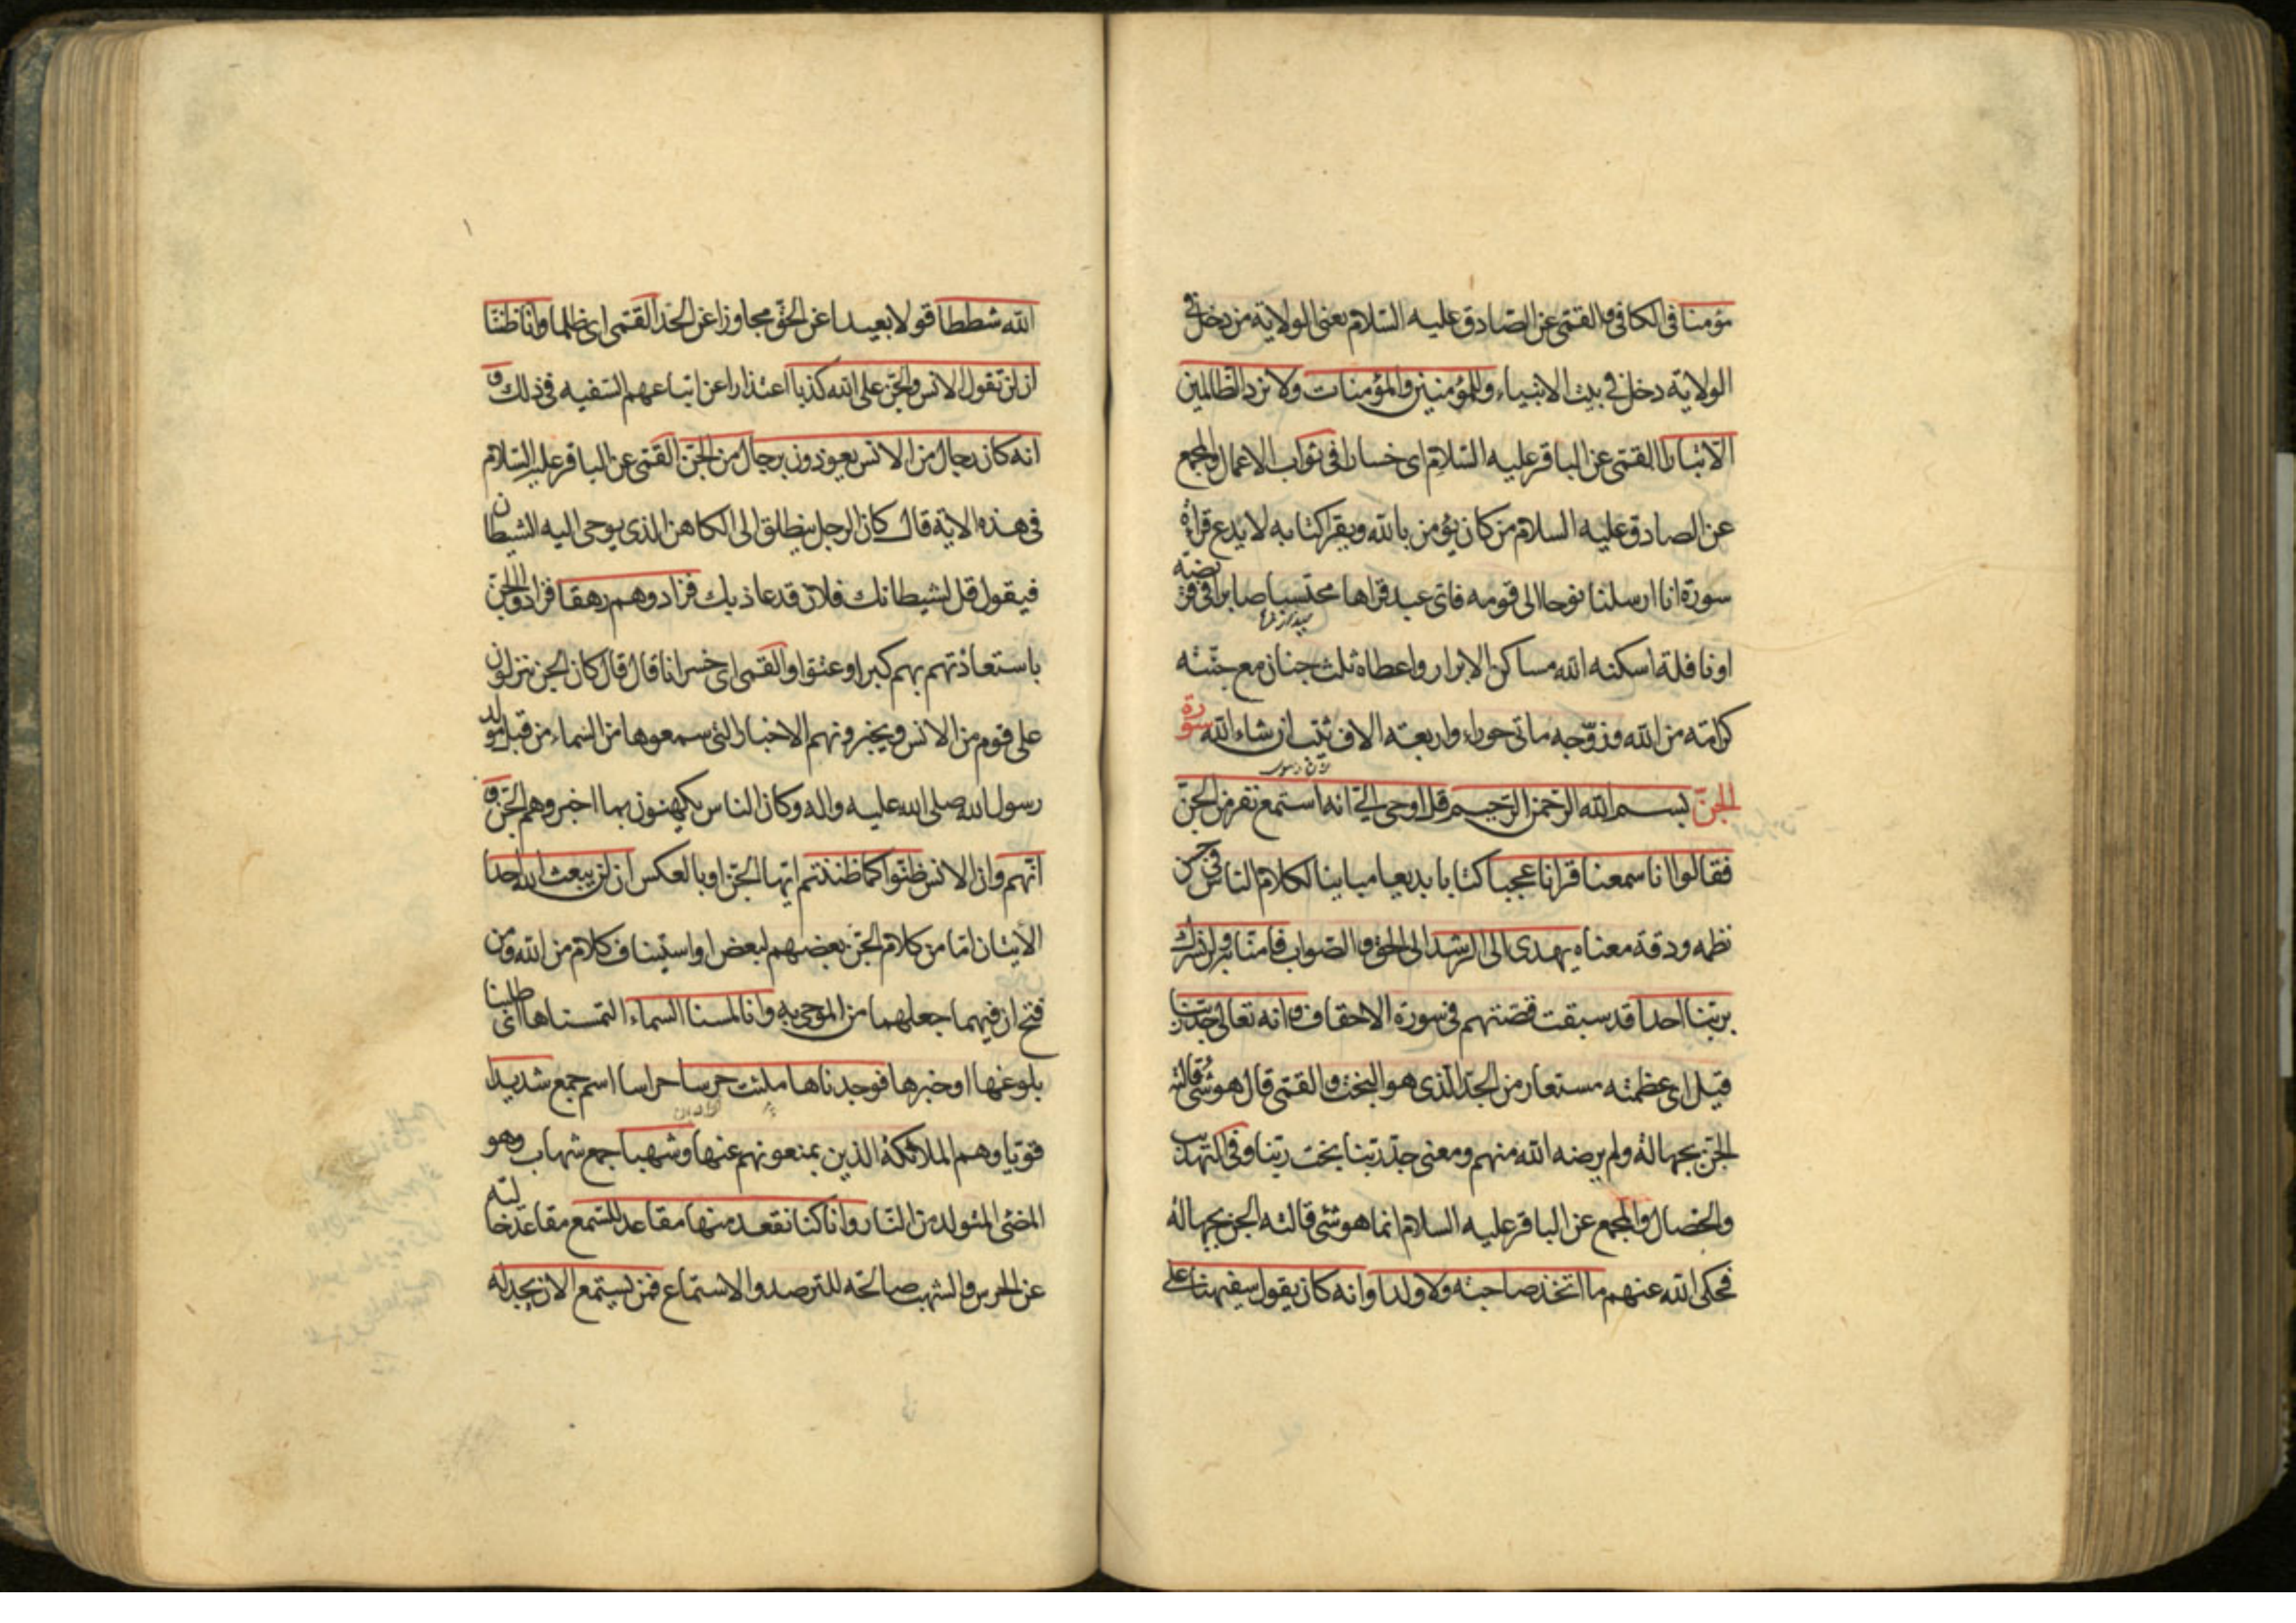 مؤمنا فى الكافى والقمى عن الصادق عليه السلام يعنى الولاية من دخل فى
الولاية دخل فى بيت الانبياء وللمؤمنين والمؤمنات ولا تزد الظالمين
الا تبارا القمى عن الباقر عليه السلام اى خسارا فى ثواب الاعمال والمجمع
عن الصادق عليه السلام من كان يؤمن بالله ويقرا كتابه لا يدع قراءة
سورة انا ارسلنا نوحا الى قومه فاى عبد قراها محتسبا صابرا فى فريضه
او نافلة اسكنه الله مساكن الابرار واعطاه ثلث جنان مع جنته
كرامة من الله وزوجه ماتى حوراء واربعة الاف ثيب ان شاء الله سورة
الجن بسم الله الرحمن الرحيم قل اوحى الى انه استمع نفر من الجن
فقالوا انا سمعنا قرانا عجبا كتابا بديعا مباينا لكلام الناس فى حسن
نظمه ودقة معناه يهدى الى الرشد الى الحق والصواب فامنا به ولن نشرك
بربنا احدا قد سبقت قصتهم فى سورة الاحقاف وانه تعالى جد ربنا
قيل اى عظمته مستعار من الجد الذى هو البخت والقمى قال هو شئ قالته
الجن بجهالة ولم يرضه الله منهم ومعنى جد ربنا بخت ربنا وفى التهذيب
والخصال والمجمع عن الباقر عليه السلام انما هو شئ قالته الجن بجهالة
فحكى الله عنهم ما اتخذ صاحبة ولا ولدا وانه كان يقول سفيهنا على
الله شططا قولا بعيدا عن الحق مجاوزا عن الحد القمى اى ظلما وانا ظننا
ان لن تقول الانس والجن على الله كذبا اعتذارا عن اتباعهم السفيه فى ذلك و
انه كان رجال من الانس يعوذون برجال من الجن القمى عن الباقر عليه السلام
فى هذه الاية قال كان الرجل ينطلق الى الكاهن الذى يوحى اليه الشيطان
فيقول قل لشيطانك فلان قد عاذ بك فزادوهم رهقا فزادوا الجن
باستعاذتهم بهم كبرا وعتوا والقمى اى خسرانا قال قال كان الجن ينزلون
على قوم من الانس ويخبرونهم الاخبار التى سمعوها من السماء من قبل مولد
رسول الله صلى الله عليه واله وكان الناس يكهنون بما اخبروهم الجن و
انهم وان الانس ظنوا كما ظننتم ايها الجن او بالعكس ان لن يبعث الله احدا
الايتان اما من كلام الجن بعضهم لبعض او استيناف كلام من الله ومن
فتح ان فيهما جعلهما من الموحى به وانا لمسنا السماء التمسناها اى طلبنا
بلوغها او خبرها فوجدناها ملئت حرسا حراسا اسم جمع شديدا
قويا وهم الملائكة الذين يمنعونهم عنها وشهبا جمع شهاب وهو
المضئ المتولد من النار وانا كنا نقعد منها مقاعد للسمع مقاعد خالية
عن الحرس والشهب صالحة للترصد والاستماع فمن يستمع الان يجد له